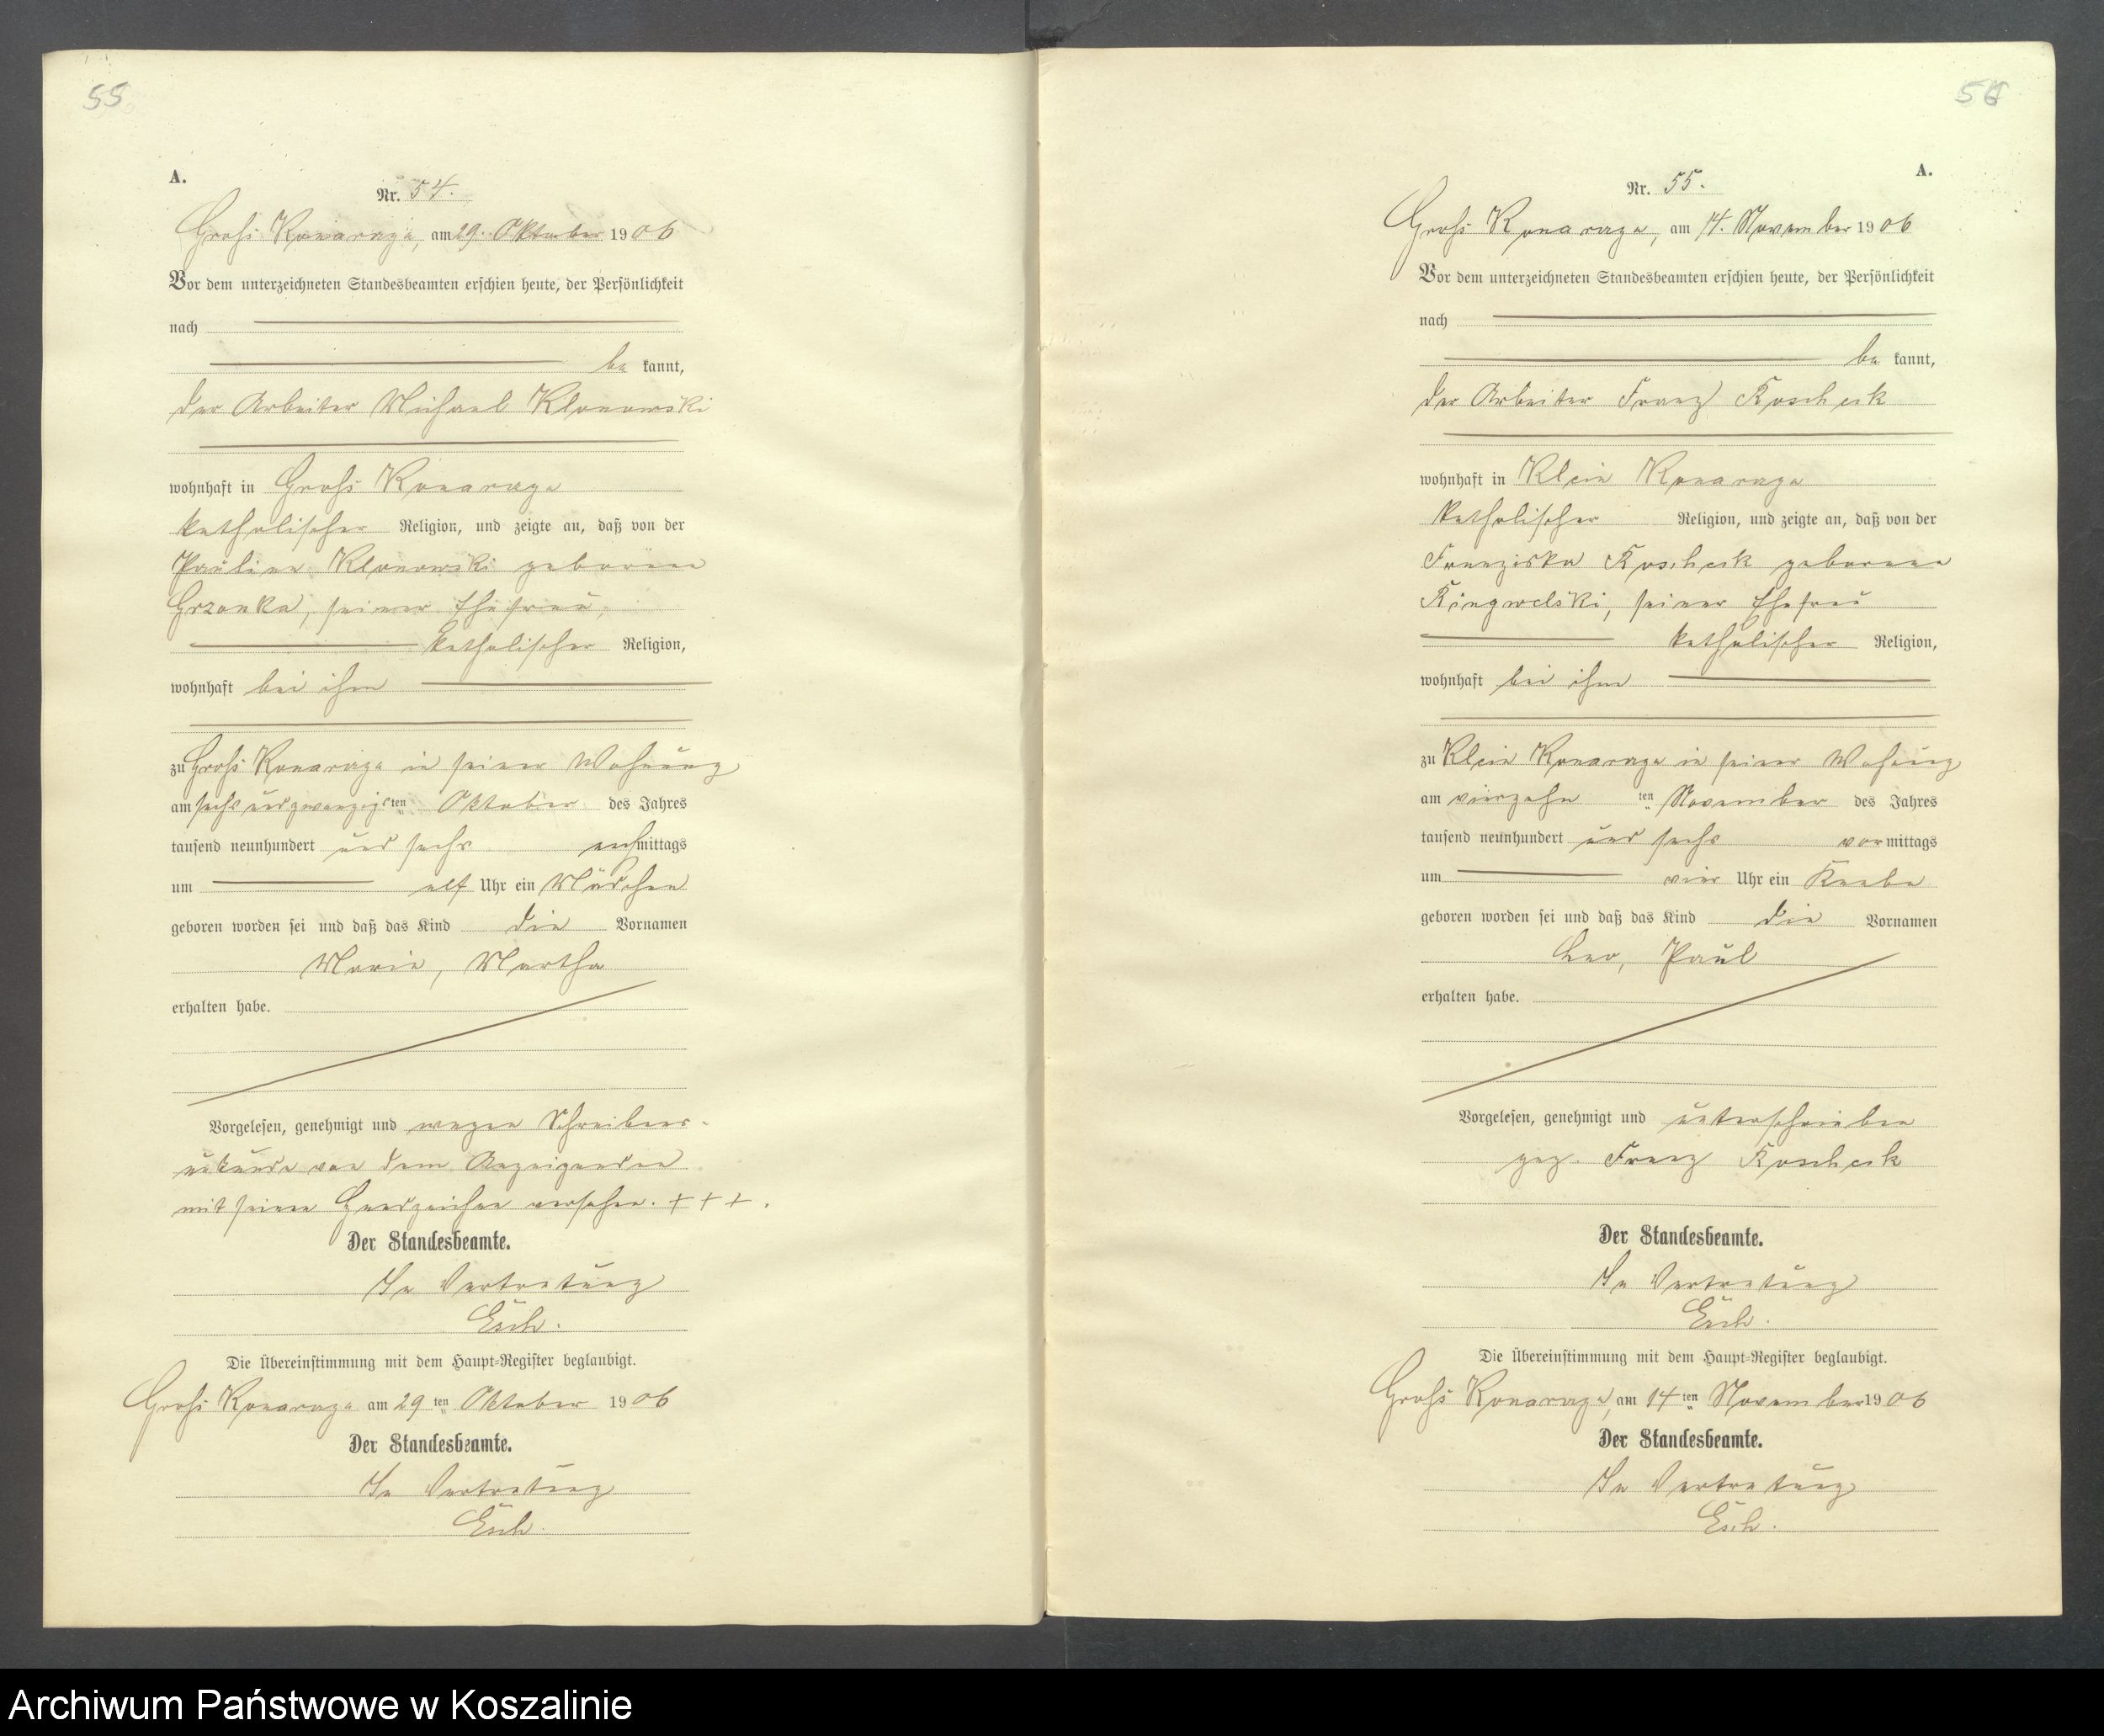 55
A.
Nr. 54.
Groß Konarzyn, am 29. Oktober 1906
Vor dem unterzeichneten Standesbeamten erschien heute, der Persönlichkeit
nach
be kannt,
der Arbeiter Michael Klonowski
wohnhaft in Groß Konarzyn
katholischer Religion, und zeigte an, daß von der
Pauline Klonowski geborene
Grzonka, seiner Ehefrau,
katholischer Religion,
wohnhaft bei ihm
zu Groß Konarzyn in seiner Wohnung
am sechs und zwanzigsten Oktober des Jahres
tausend neunhundert und sechs nachmittags
um elf Uhr ein Mädchen
geboren worden sei und daß das Kind die Vornamen
Marie, Martha
erhalten habe.
Vorgelesen, genehmigt und wegen Schreibens-
unkunde von dem Anzeigenden
mit seinem Handzeichen versehen. + + + .
Der Standesbeamte.
In Vertretung
Esch.
Die Übereinstimmung mit dem Haupt-Register beglaubigt.
Groß Konarzyn am 29 ten Oktober 1906
Der Standesbeamte.
In Vertretung
Esch.
56
A.
Nr. 55.
Groß Konarzyn, am 14. November 1906
Vor dem unterzeichneten Standesbeamten erschien heute, der Persönlichkeit
nach
be kannt,
der Arbeiter Franz Koscheck
wohnhaft in Klein Konarzyn
katholischer Religion, und zeigte an, daß von der
Franziska Koscheck geborene
seiner Ehefrau
katholischer Religion,
wohnhaft bei ihm
zu Klein Konarzyn in seiner Wohnung
am vierzehn ten November des Jahres
tausend neunhundert und sechs vormittags
um vier Uhr ein Knabe
geboren worden sei und daß das Kind die Vornamen
Leo, Paul
erhalten habe.
Vorgelesen, genehmigt und unterschrieben
gez. Franz Koscheck
Der Standesbeamte.
In Vertretung
Esch.
Die Übereinstimmung mit dem Haupt-Register beglaubigt.
Groß Konarzyn, am 14 ten November 1906
Der Standesbeamte.
In Vertretung
Esch.
Archiwum Państwowe w Koszalinie